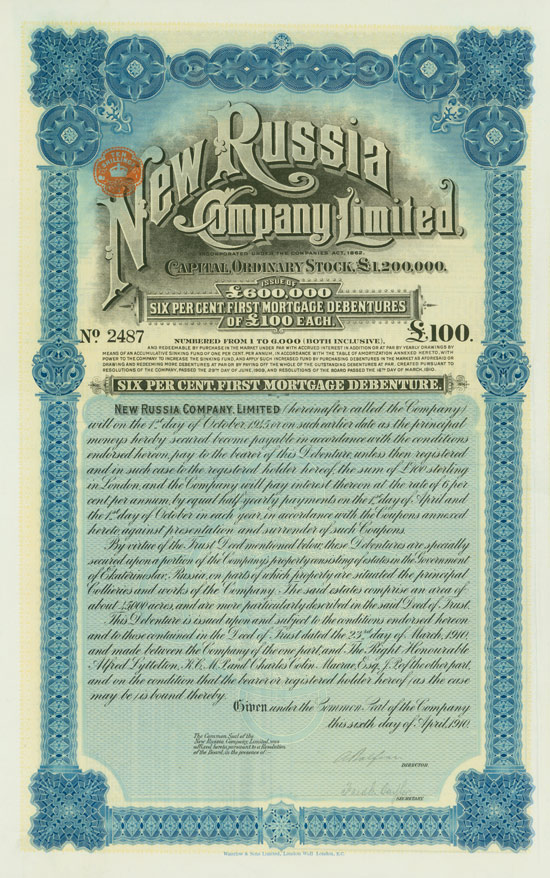 New Russia
Company Limited.
INCORPORATED UNDER THE COMPANIES' ACT, 1862.
CAPITAL, ORDINARY STOCK, £1,200,000.
ISSUE OF
£600,000
SIX PER CENT. FIRST MORTGAGE DEBENTURES
OF £100 EACH
No. 2487
£100.
NUMBERED FROM 1 TO 6.000 (BOTH INCLUSIVE),
AND REDEEMABLE BY PURCHASE IN THE MARKET UNDER PAR WITH ACCRUED INTEREST IN ADDITION OR AT PAR BY YEARLY DRAWINGS BY
MEANS OF AN ACCUMULATIVE SINKING FUND OF ONE PER CENT. PER ANNUM, IN ACCORDANCE WITH THE TABLE OF AMORTIZATION ANNEXED HERETO, WITH
POWER TO THE COMPANY TO INCREASE THE SINKING FUND, AND APPLY SUCH INCREASED FUND BY PURCHASING DEBENTURES IN THE MARKET AS AFORESAID OR
DRAWING AND REDEEMING MORE DEBENTURES AT PAR OR BY PAYING OFF THE WHOLE OF THE OUTSTANDING DEBENTURES AT PAR. CREATED PURSUANT TO
RESOLUTIONS OF THE COMPANY, PASSED THE 29TH DAY OF JUNE, 1909, AND RESOLUTIONS OF THE BOARD PASSED THE 16TH DAY OF MARCH, 1910.
SIX PER CENT. FIRST MORTGAGE DEBENTURE.
NEW RUSSIA COMPANY, LIMITED (hereinafter called the Company)
will on the 1st day of October, 1945 or on such earlier date as the principal
moneys hereby secured become payable in accordance with the conditions
endorsed hereon, pay to the bearer of this Debenture, unless then registered
and in such case to the registered holder hereof, the sum of £100 sterling
in London, and the Company will pay interest thereon at the rate of 6 per
cent per annum, by equal half yearly payments on the 1st day of April and
the 1st day of October in each year, in accordance with the Coupons annexed
hereto against presentation and surrender of such Coupons.
By virtue of the Trust Deed mentioned below, these Debentures are specially
secured upon a portion of the Company's property consisting of estates in the Government
of Ekaterinoslav, Russia, on parts of which property are situated the principal
Collieries and works of the Company. The said estates comprise an area of
about 45000 acres, and are more particularly described in the said Deed of Trust.
This Debenture is issued upon and subject to the conditions endorsed hereon
and to those contained in the Deed of Trust dated the 23rd day of March, 1910,
and made between the Company of the one part, and The Right Honourable
Alfred Lyttelton, K.C. M.P. and Charles Colin Macrae, Esq. J.P. of the other part,
and on the condition that the bearer or registered holder hereof (as the case
may be) is bound thereby.
Given under the Common Seal of the Company
this sixth day of April, 1910.
The Common Seal of the
New Russia Company, Limited, was
affixed hereto, pursuant to a Resolution
of the Board, in the presence of—
DIRECTOR.
SECRETARY.
Waterlow & Sons Limited, London Wall, London, E.C.